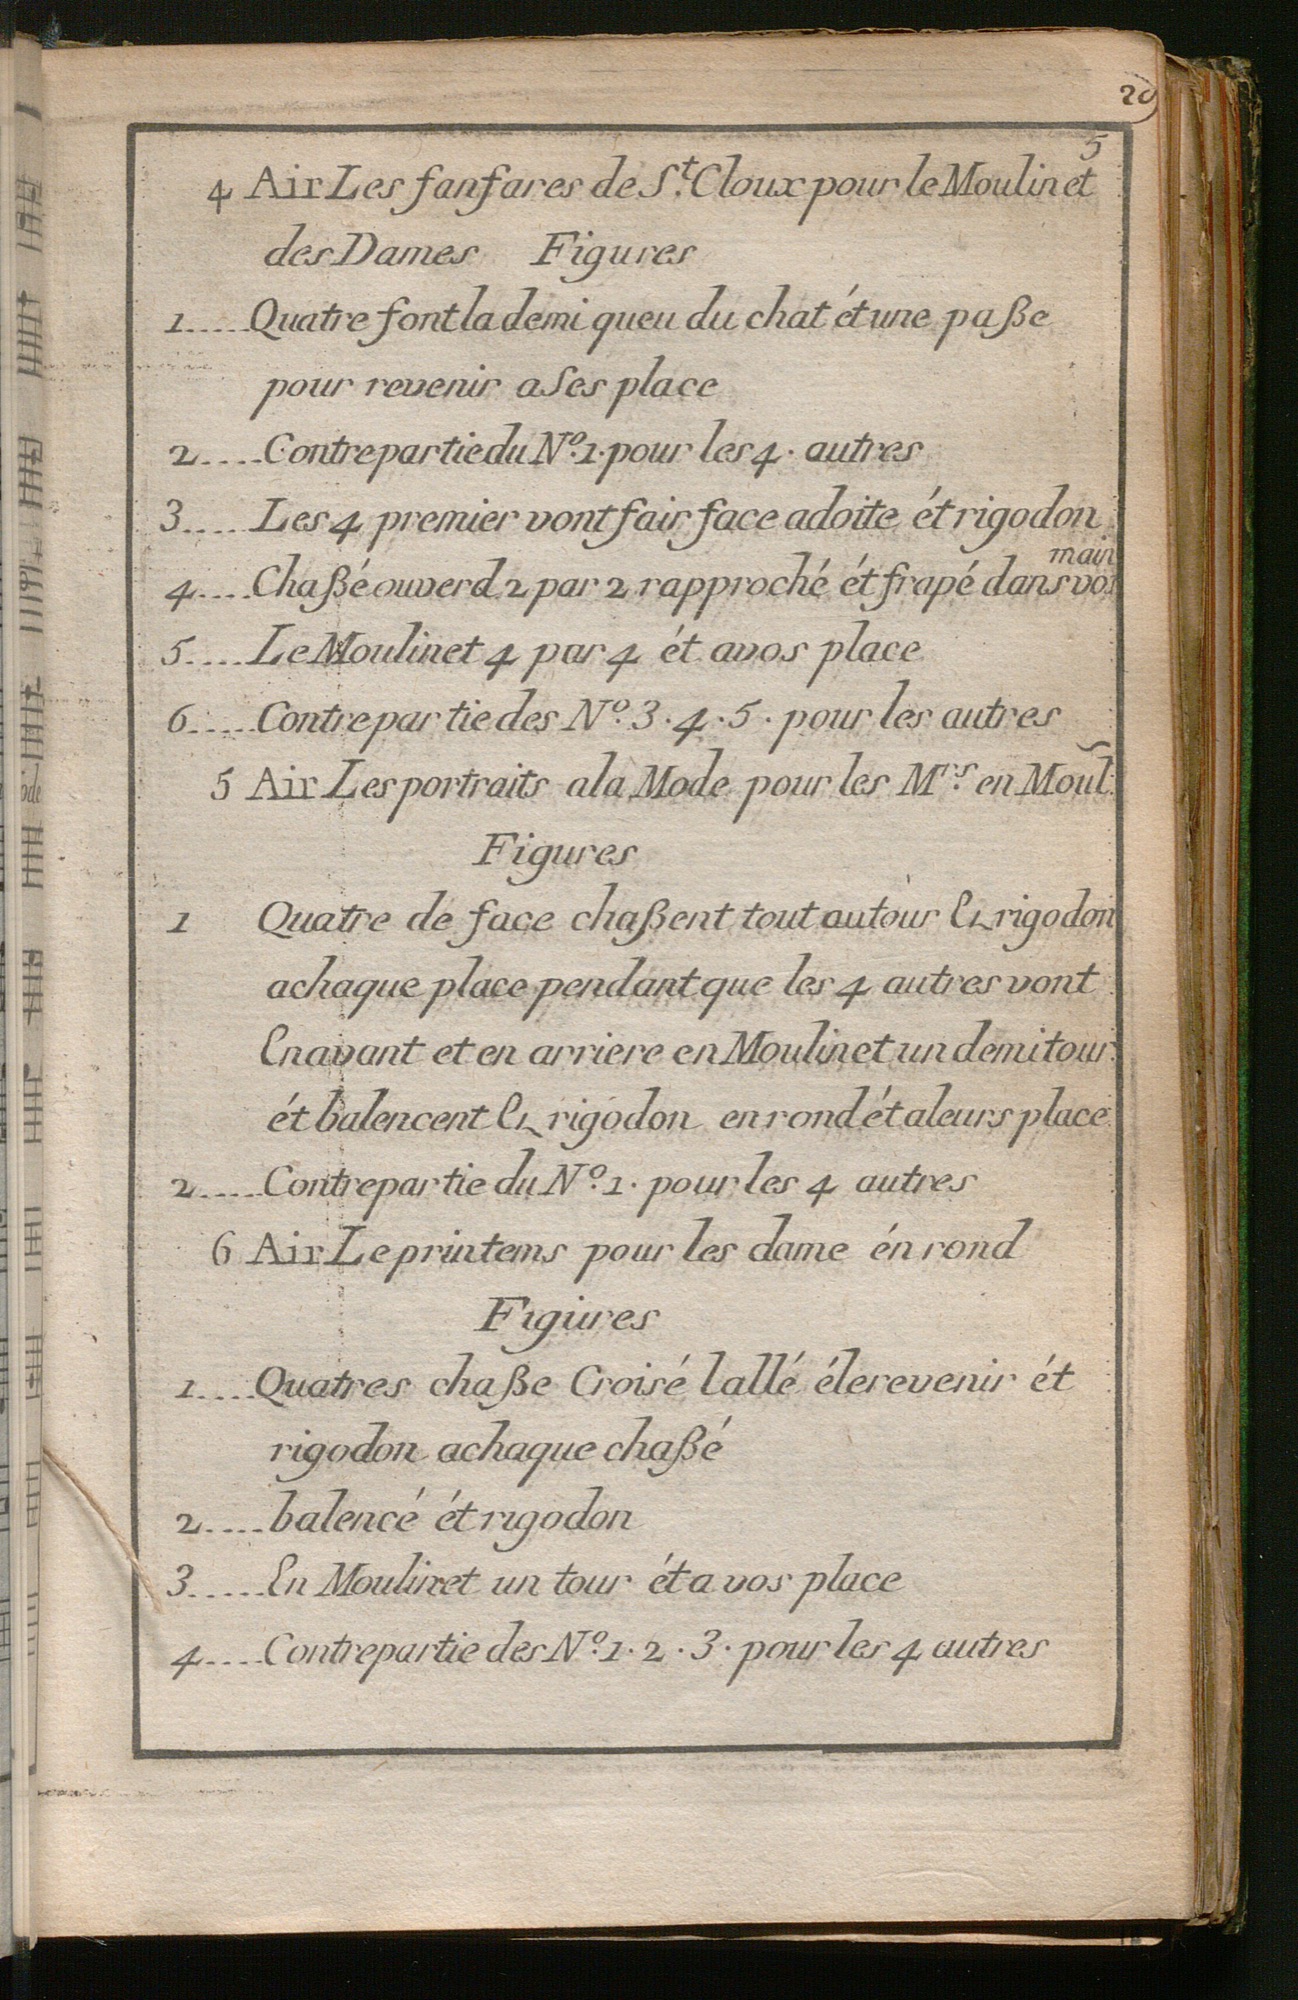 20
5
4 Air Les fanfares de St. Cloux pour le Moulinet
des Dames Figures
1.....Quatre font la demi queu du chat ét une paße
pour revenir a ses place
2....Contrepartie du No. 1. pour les 4. autres
3....Les 4 premier vont fair face adoite ét rigodon
main
4....Chaßé ouverd 2 par 2 rapproché ét frapé dans vos
5....Le Moulinet 4 par 4 ét avos place
6.....Contrepartie des No. 3. 4. 5. pour les autres
5 Air Les portraits ala Mode pour les Mrs. en Moul.
Figures
1 Quatre de face chaßent tout autour Et rigodon
achaque place pendant que les 4 autres vont
En avant et en arriere en Moulinet un demi tour
ét balencent Et rigodon en rond ét aleurs place
2.....Contrepartie du No. 1. pour les 4 autres
6 Air Le printems pour les dame én rond
Figures
1....Quatres chaße Croisé lallé éle revenir ét
rigodon achaque chaßé
2....balencé ét rigodon
3.....En Moulinet un tour ét a vos place
4....Contrepartie des No. 1. 2. 3. pour les 4 autres